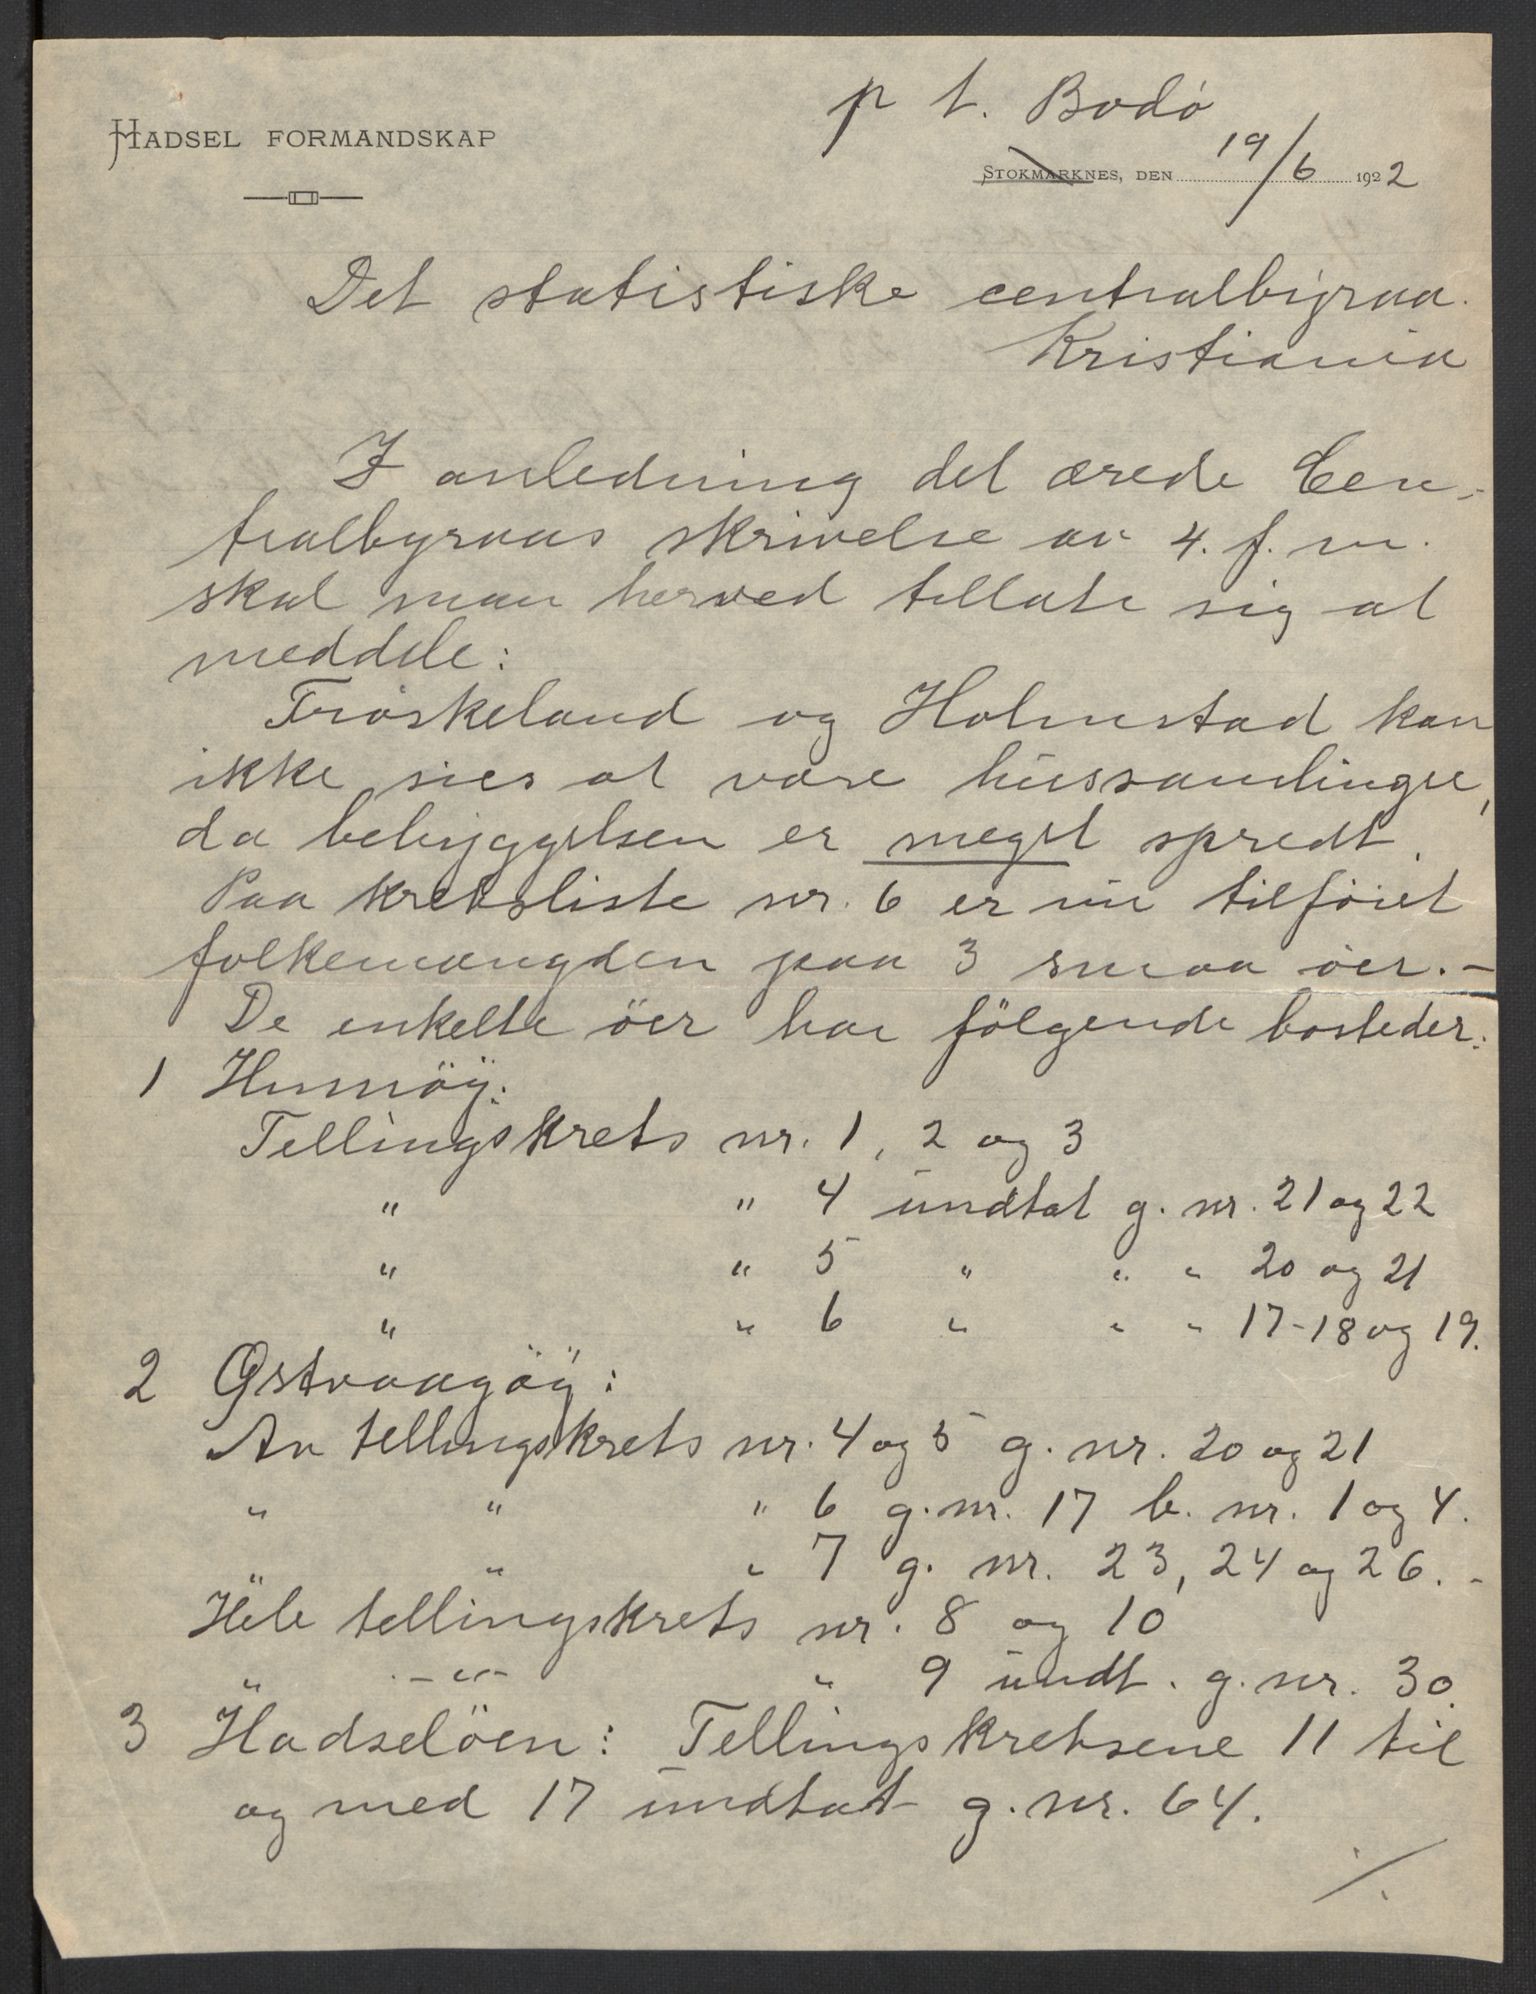 p t. Bodó
HADSEL FORMANDSKAP
STOKMARKNES, DEN 19/6 1922
Det statistiske centralbyraa.
Kristiania
I anledning det ærede Cen-
tralbyraas skrivelse av 4. f. m.
skal man herved tillate sig at
meddele:
Fröskeland og Holmstad kan
ikke sies at være hussamlinger,
da bebyggelsen er meget spredt.
Paa kretsliste nr. 6 er nu tilföiet
folkemængden paa 3 smaa öer. -
De enkelte öer har fölgende bosteder:
1 Hinnöy:
Tellingskrets nr. 1, 2 og 3
" " 4 undtat g. nr. 21 og 22
" " 5 " " " 20 og 21
" " 6 " " " 17-18 og 19.
2 Østvaagöy:
Av tellingskrets nr. 4 og 5 g. nr. 20 og 21
" " " 6 g. nr. 17 b. nr. 1 og 4.
" " " 7 g. nr. 23, 24 og 26. -
Hele tellingskrets nr. 8 og 10
" -"- " 9 undt. g. nr. 30.
3 Hadselöen: Tellingskretsene 11 til
og med 17 undtat g. nr. 64.
./.